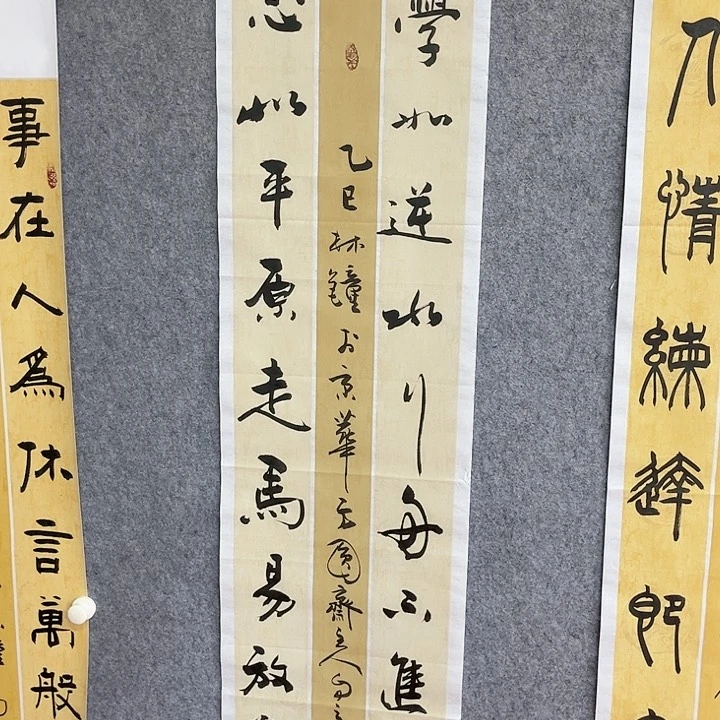 人情練達即
學如逆水行舟不進
乙巳林鐘於京華
齋主人
心如平原走馬易放
事在人為休言萬般